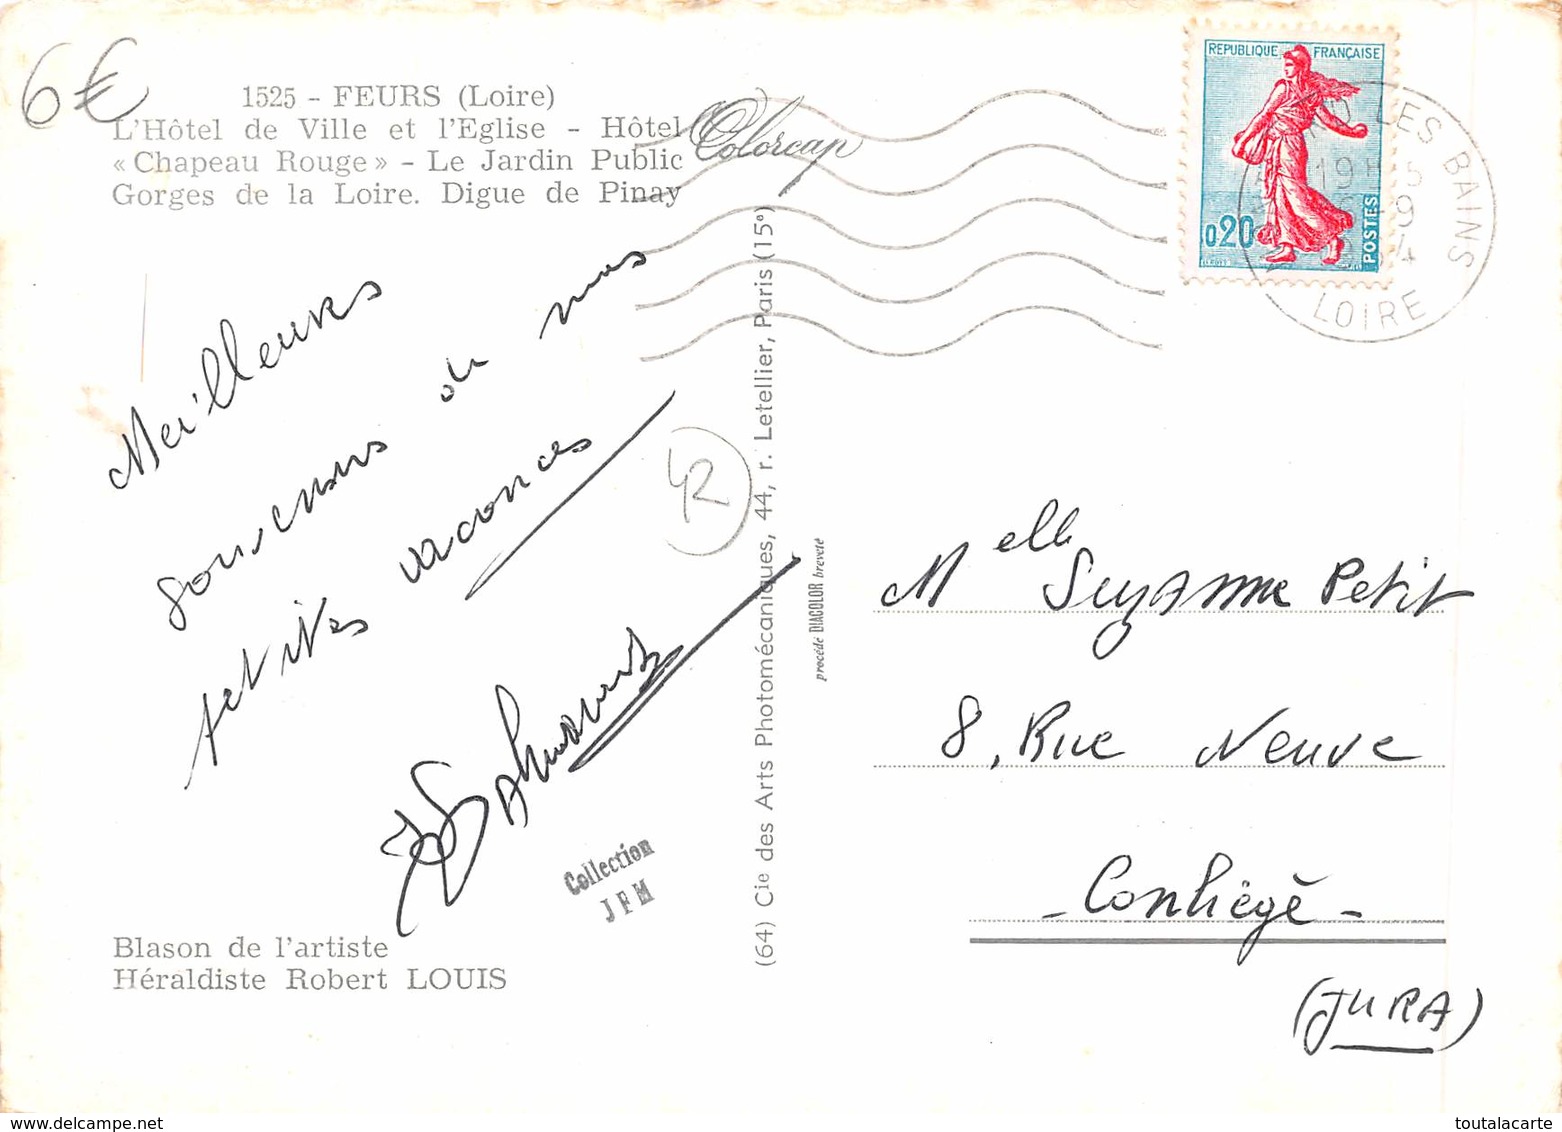 6€
1525 - FEURS (Loire)
L'Hôtel de Ville et l'Eglise - Hôtel
« Chapeau Rouge » - Le Jardin Public
Gorges de la Loire. Digue de Pinay
Colorcap
REPUBLIQUE FRANÇAISE
0,20
POSTES
LES BAINS
LOIRE
Meilleurs
souvenirs de nos
petites vacances
42
Collection
JFM
Blason de l'artiste
Héraldiste Robert LOUIS
(64) Cie des Arts Photomécaniques, 44, r. Letellier, Paris (15e)
procédé DIACOLOR breveté
Melle Suzanne Petit
8, Rue Neuve
- Conliège -
(JURA)
toutalacarte